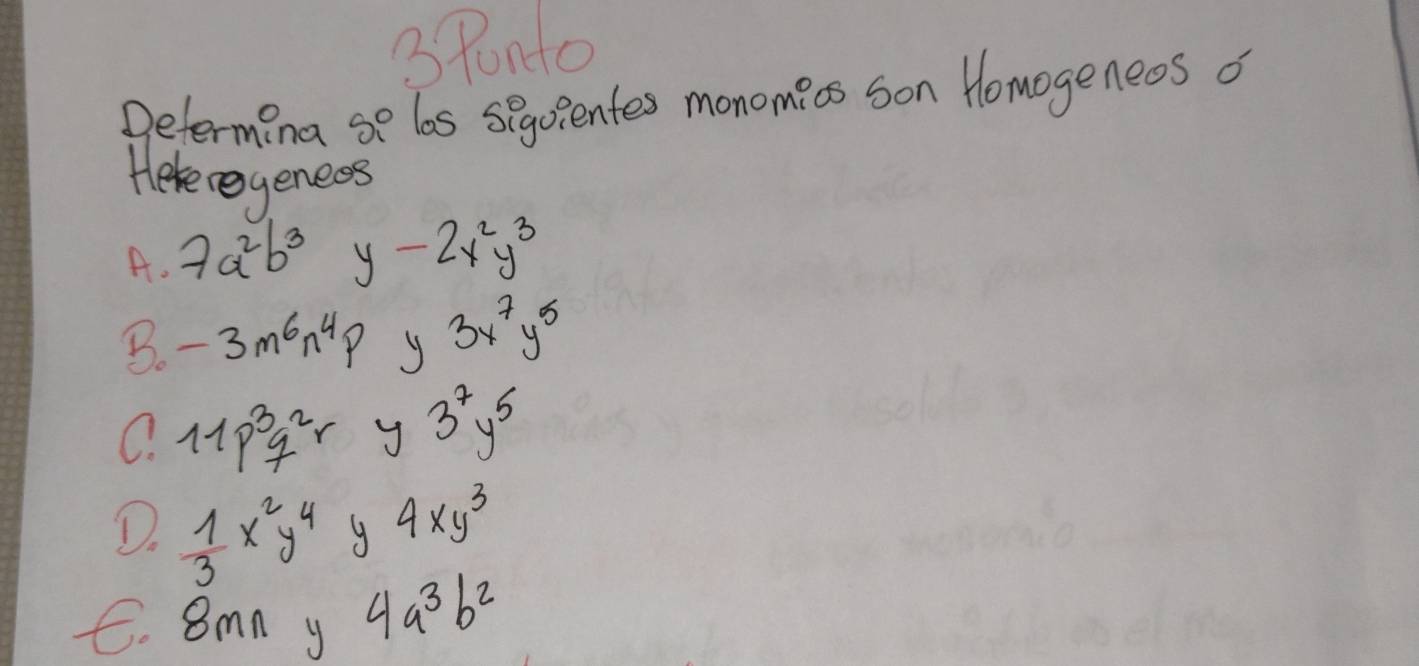 3 Punto
Determina si los siguientes monomios son Homogeneos ó
Heterogeneos
A. 7a²b³ y -2x²y³
B. -3m⁶n⁴p y 3x⁷y⁵
C. 11p³q²r y 3⁷y⁵
D. 1/3 x²y⁴ y 4xy³
E. 8mn y 4a³b²